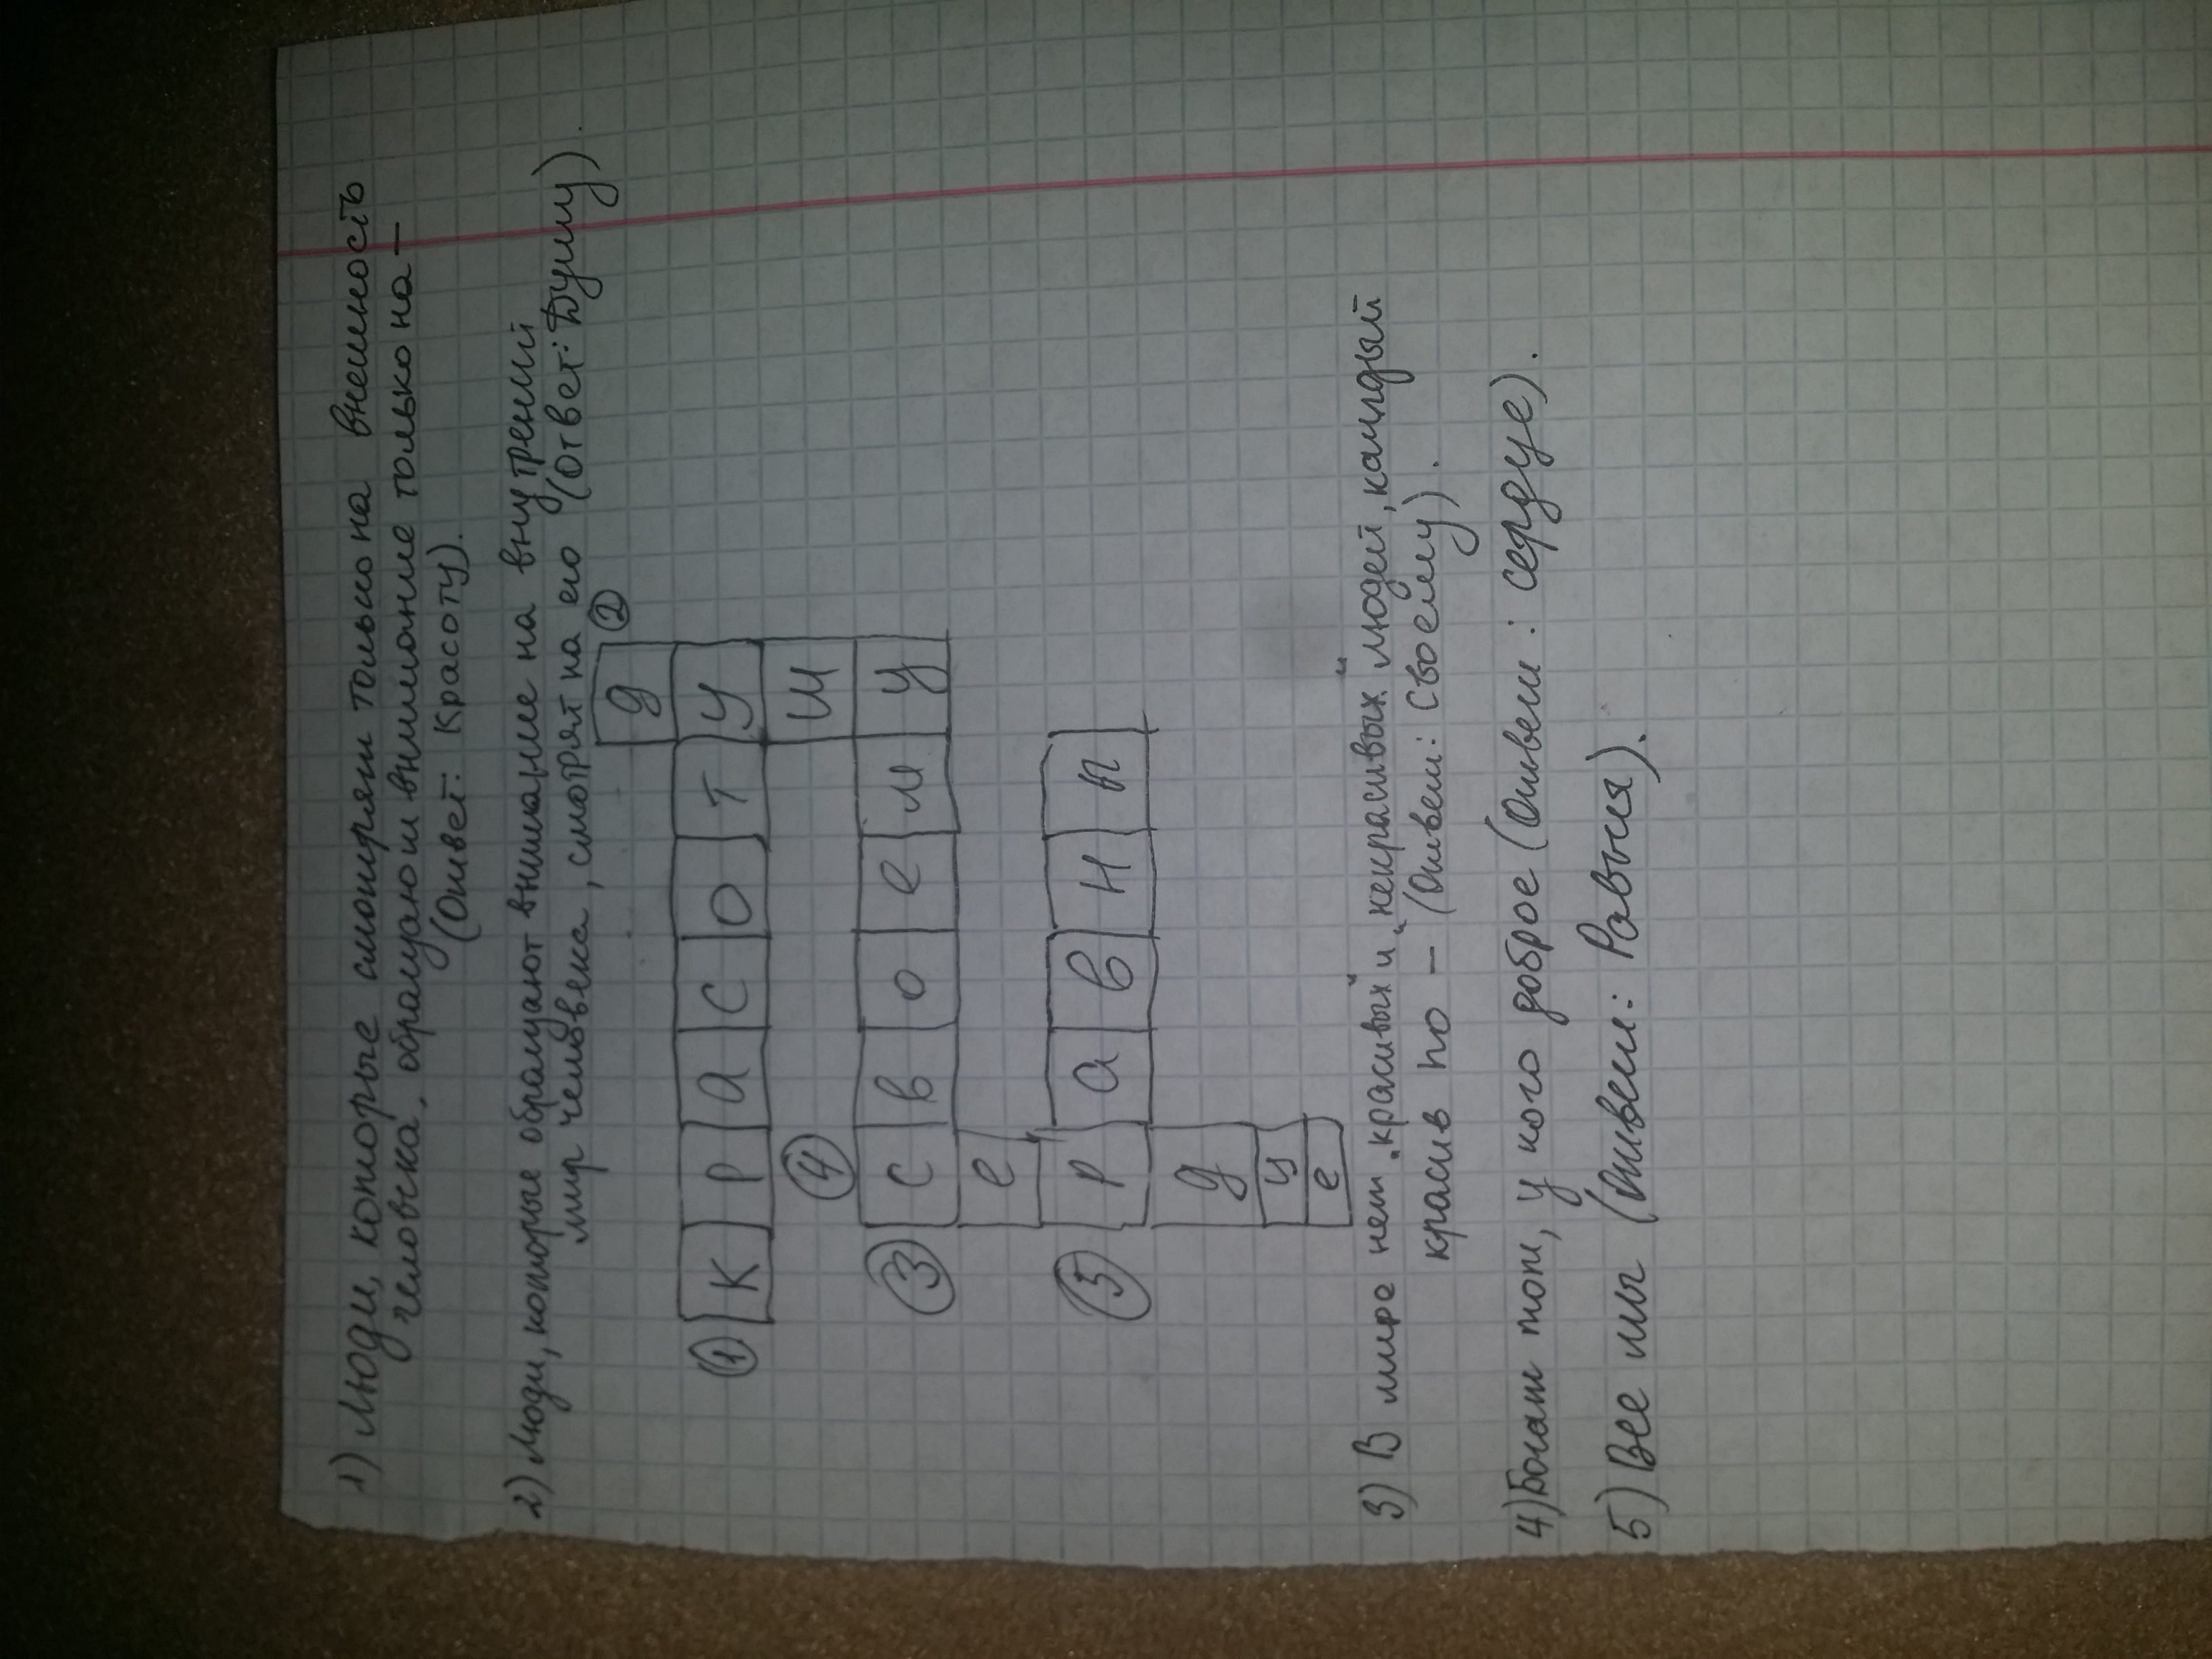 1) Люди, которые смотрят только на внешность
человека, обращают внимание только на —
(Ответ: Красоту).
2) Люди, которые обращают внимание на внутрений
мир человека, смотрят на его (Ответ: Душу).
д ②
① К Р а С О Т У
④ Ш
③ С В О Е М У
е
⑤ Р а В Н Ы
д
ц
е
3) В мире нет „красивых" и „некрасивых" людей, каждый
красив по — (Ответ: Своему).
4) Богат тот, у кого доброе (Ответ: сердце).
5) Все мы (Ответ: Равны).